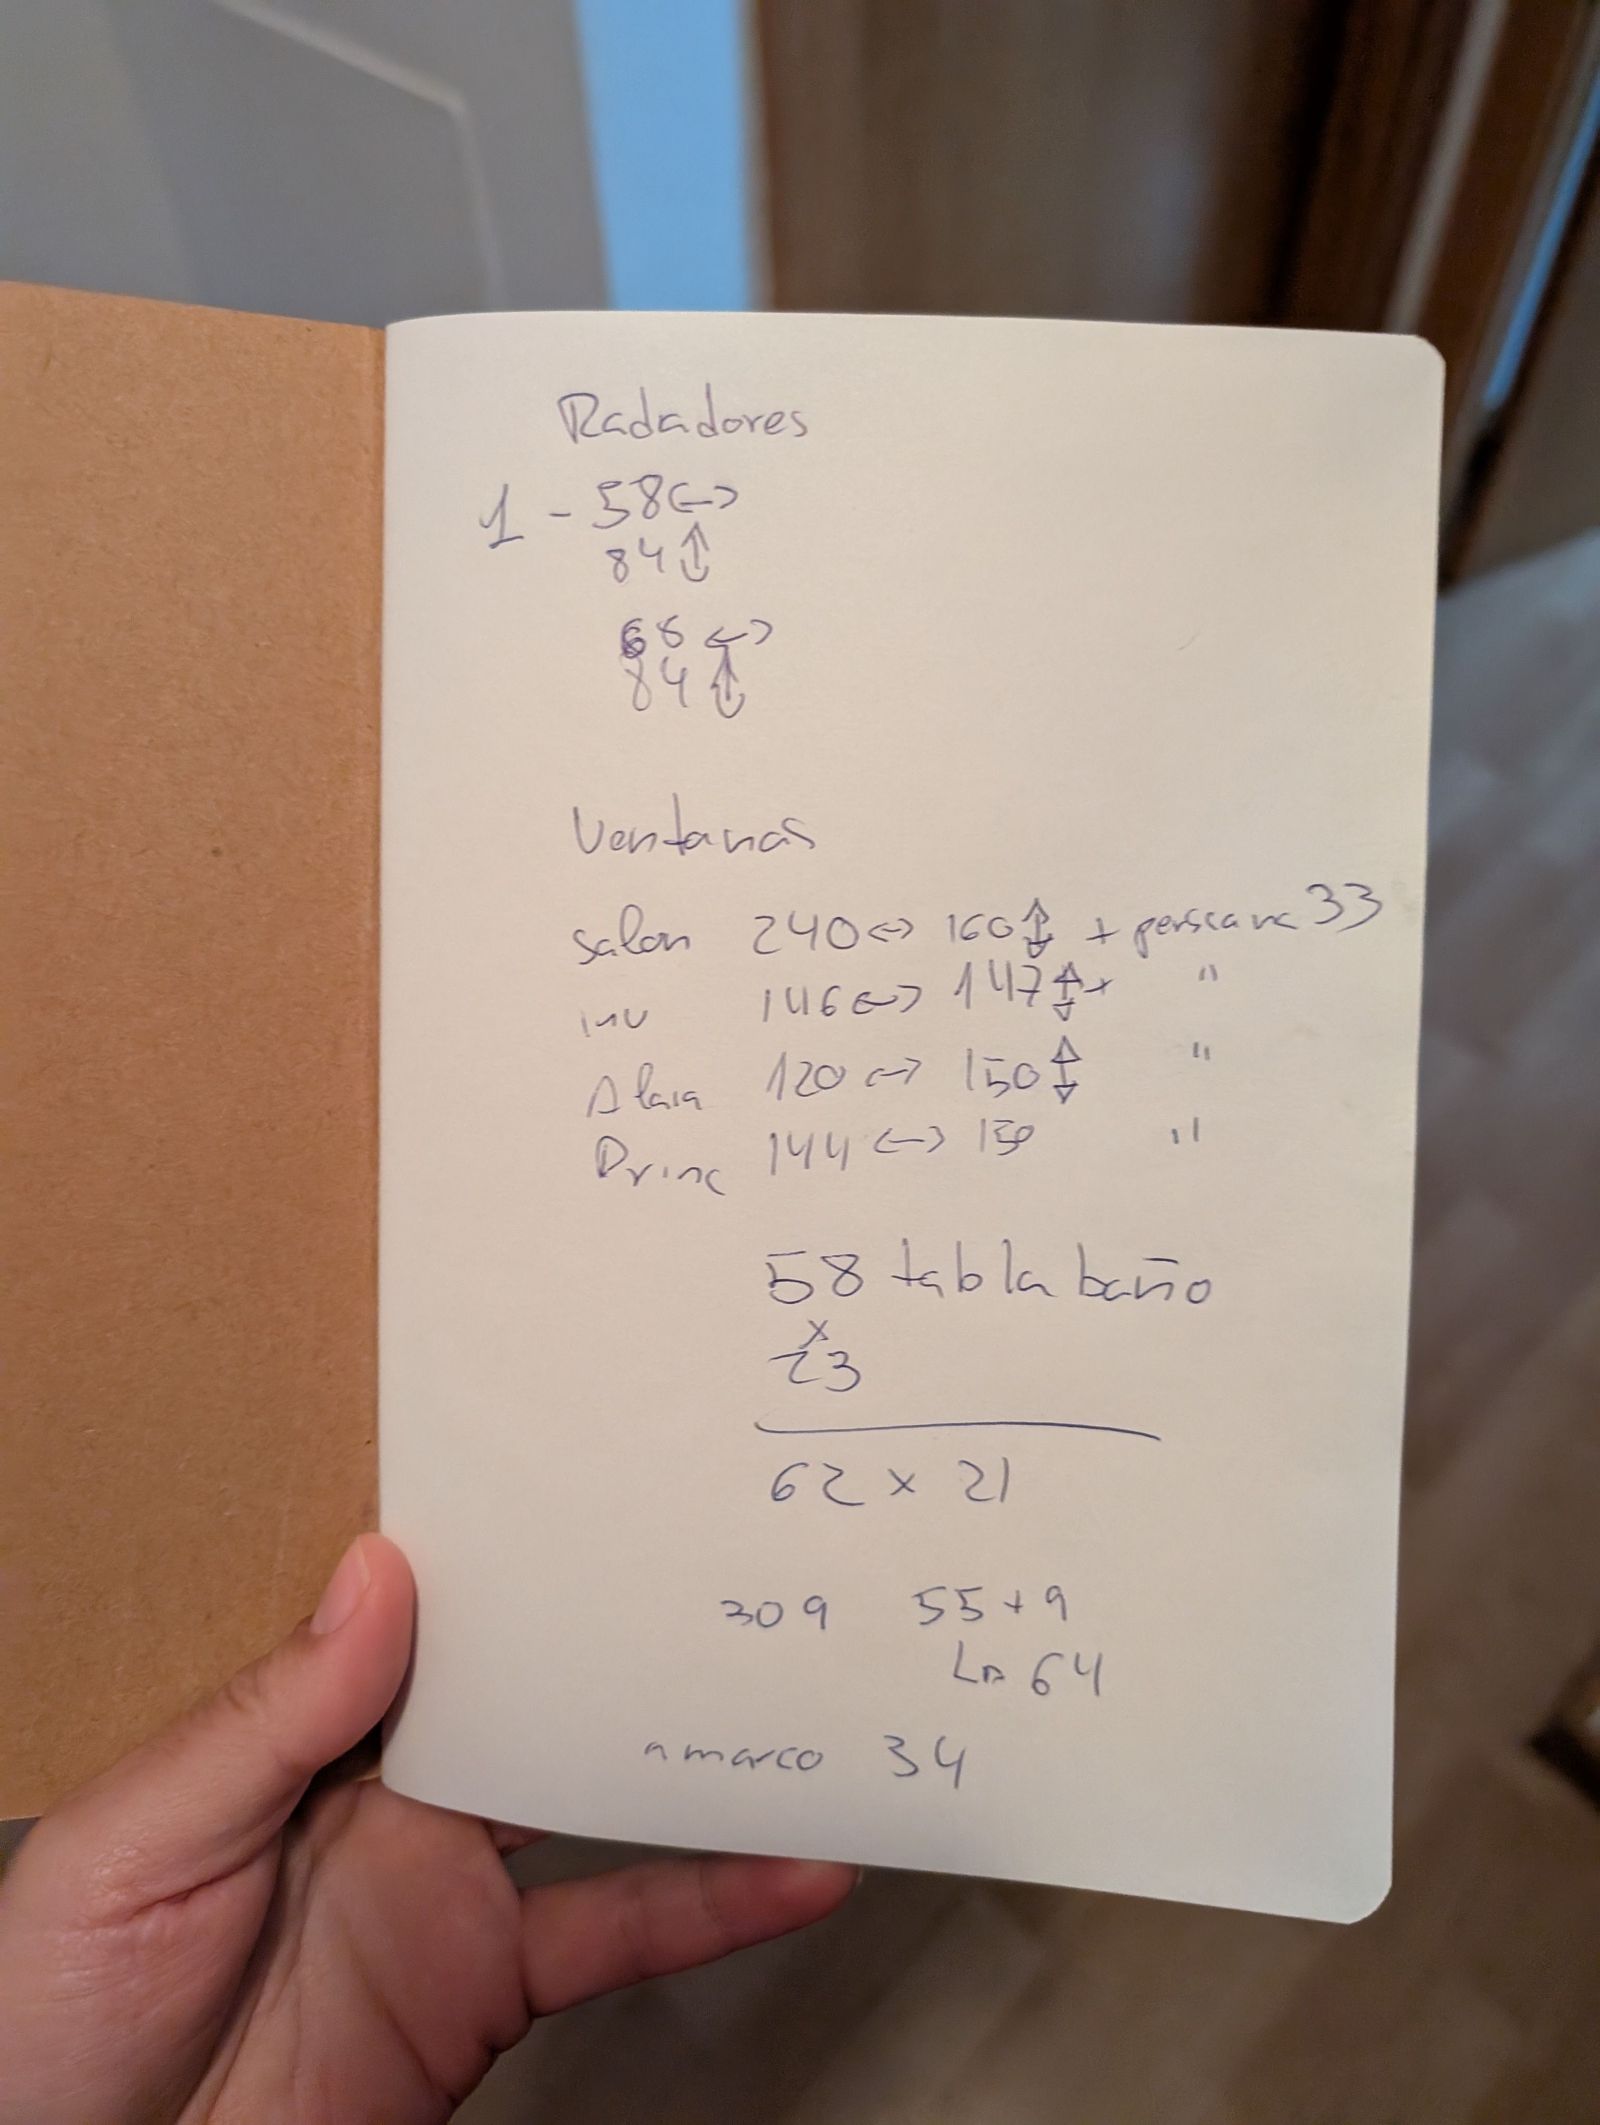 Radiadores
1 - 58 ↔
84 ↕
68 ↔
84 ↕
Ventanas
salon 240 ↔ 160 ↕ + persiana 33
inv 146 ↔ 147 ↕ + "
Alaia 120 ↔ 150 ↕ "
Princ 144 ↔ 150 "
58 tabla baño
x
23
62 x 21
309 55 + 9
64
a marco 34